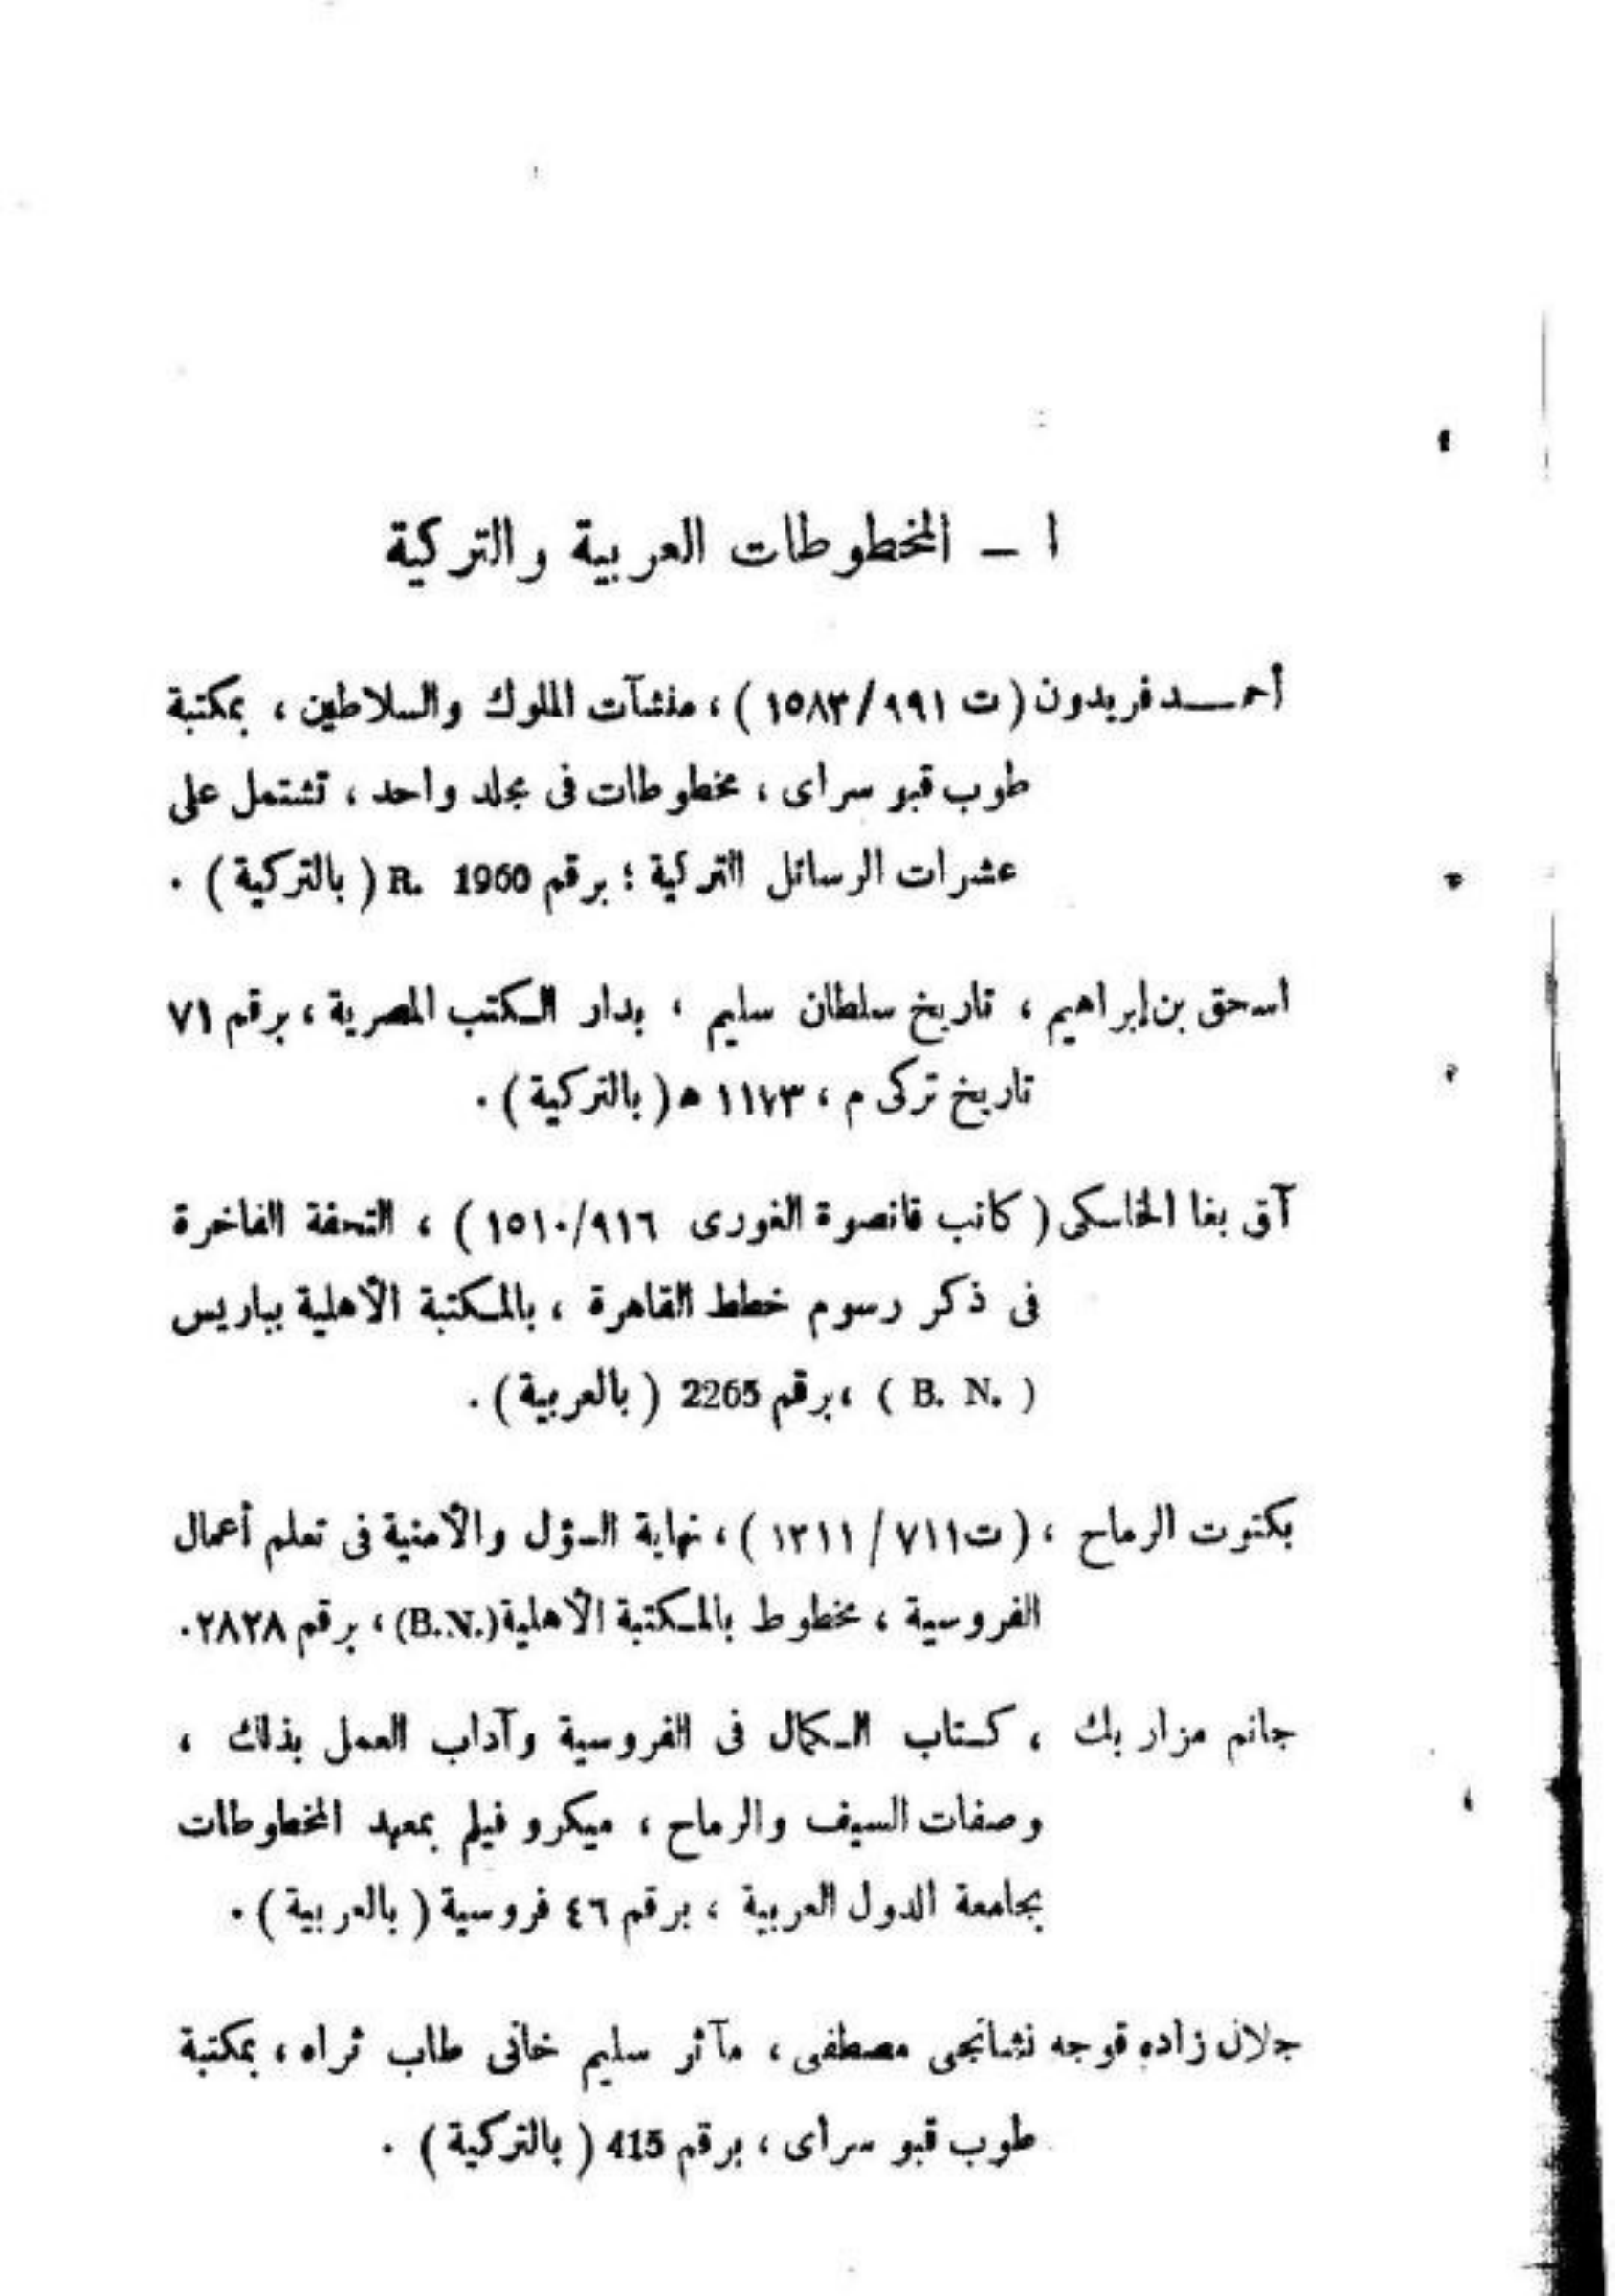 ا – المخطوطات العربية والتركية
أحمــد فريدون ( ت ٩٩١/١٥٨٣ ) ، منشآت الملوك والسلاطين ، بمكتبة
طوب قبو سراى ، مخطوطات فى مجلد واحد ، تشتمل على
عشرات الرسائل التركية ؛ برقم R. 1960 ( بالتركية ) .
اسحق بن إبراهيم ، تاريخ سلطان سليم ، بدار الكتب المصرية ، برقم ٧١
تاريخ تركى م ، ١١٧٣ هـ ( بالتركية ) .
آق بغا الخاسكى ( كاتب قانصوة الغورى ٩١٦/١٥١٠ ) ، التحفة الفاخرة
فى ذكر رسوم خطط القاهرة ، بالمكتبة الأهلية بباريس
( B. N. ) ، برقم 2265 ( بالعربية ) .
بكتوت الرماح ، ( ت ٧١١ / ١٣١١ ) ، نهاية السؤل والأمنية فى تعلم أعمال
الفروسية ، مخطوط بالمكتبة الأهلية (B.N.) ، برقم ٢٨٢٨ .
جانم مزار بك ، كتاب الكمال فى الفروسية وآداب العمل بذلك ،
وصفات السيف والرماح ، ميكرو فيلم بمعهد المخطوطات
بجامعة الدول العربية ، برقم ٤٦ فروسية ( بالعربية ) .
جلال زاده قوجه نشانجى مصطفى ، مآثر سليم خانى طاب ثراه ، بمكتبة
طوب قبو سراى ، برقم 415 ( بالتركية ) .